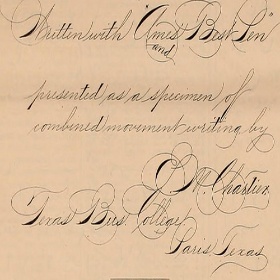 Written with "Ames' Best Pen"
and
presented as a specimen of
combined movement writing by
C. M. Chartier,
Texas Bus. College,
Paris, Texas